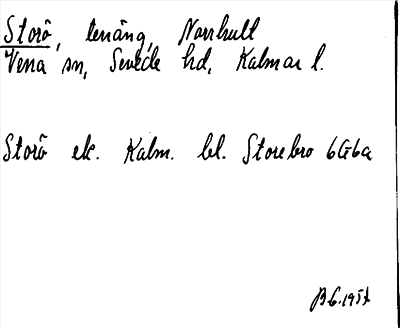 Storö, tenäng, Norrhult
Vena sn, Sevede hd, Kalmar l.
Storö ek. Kalm. bl. Storebro 6G6a
B G. 1957